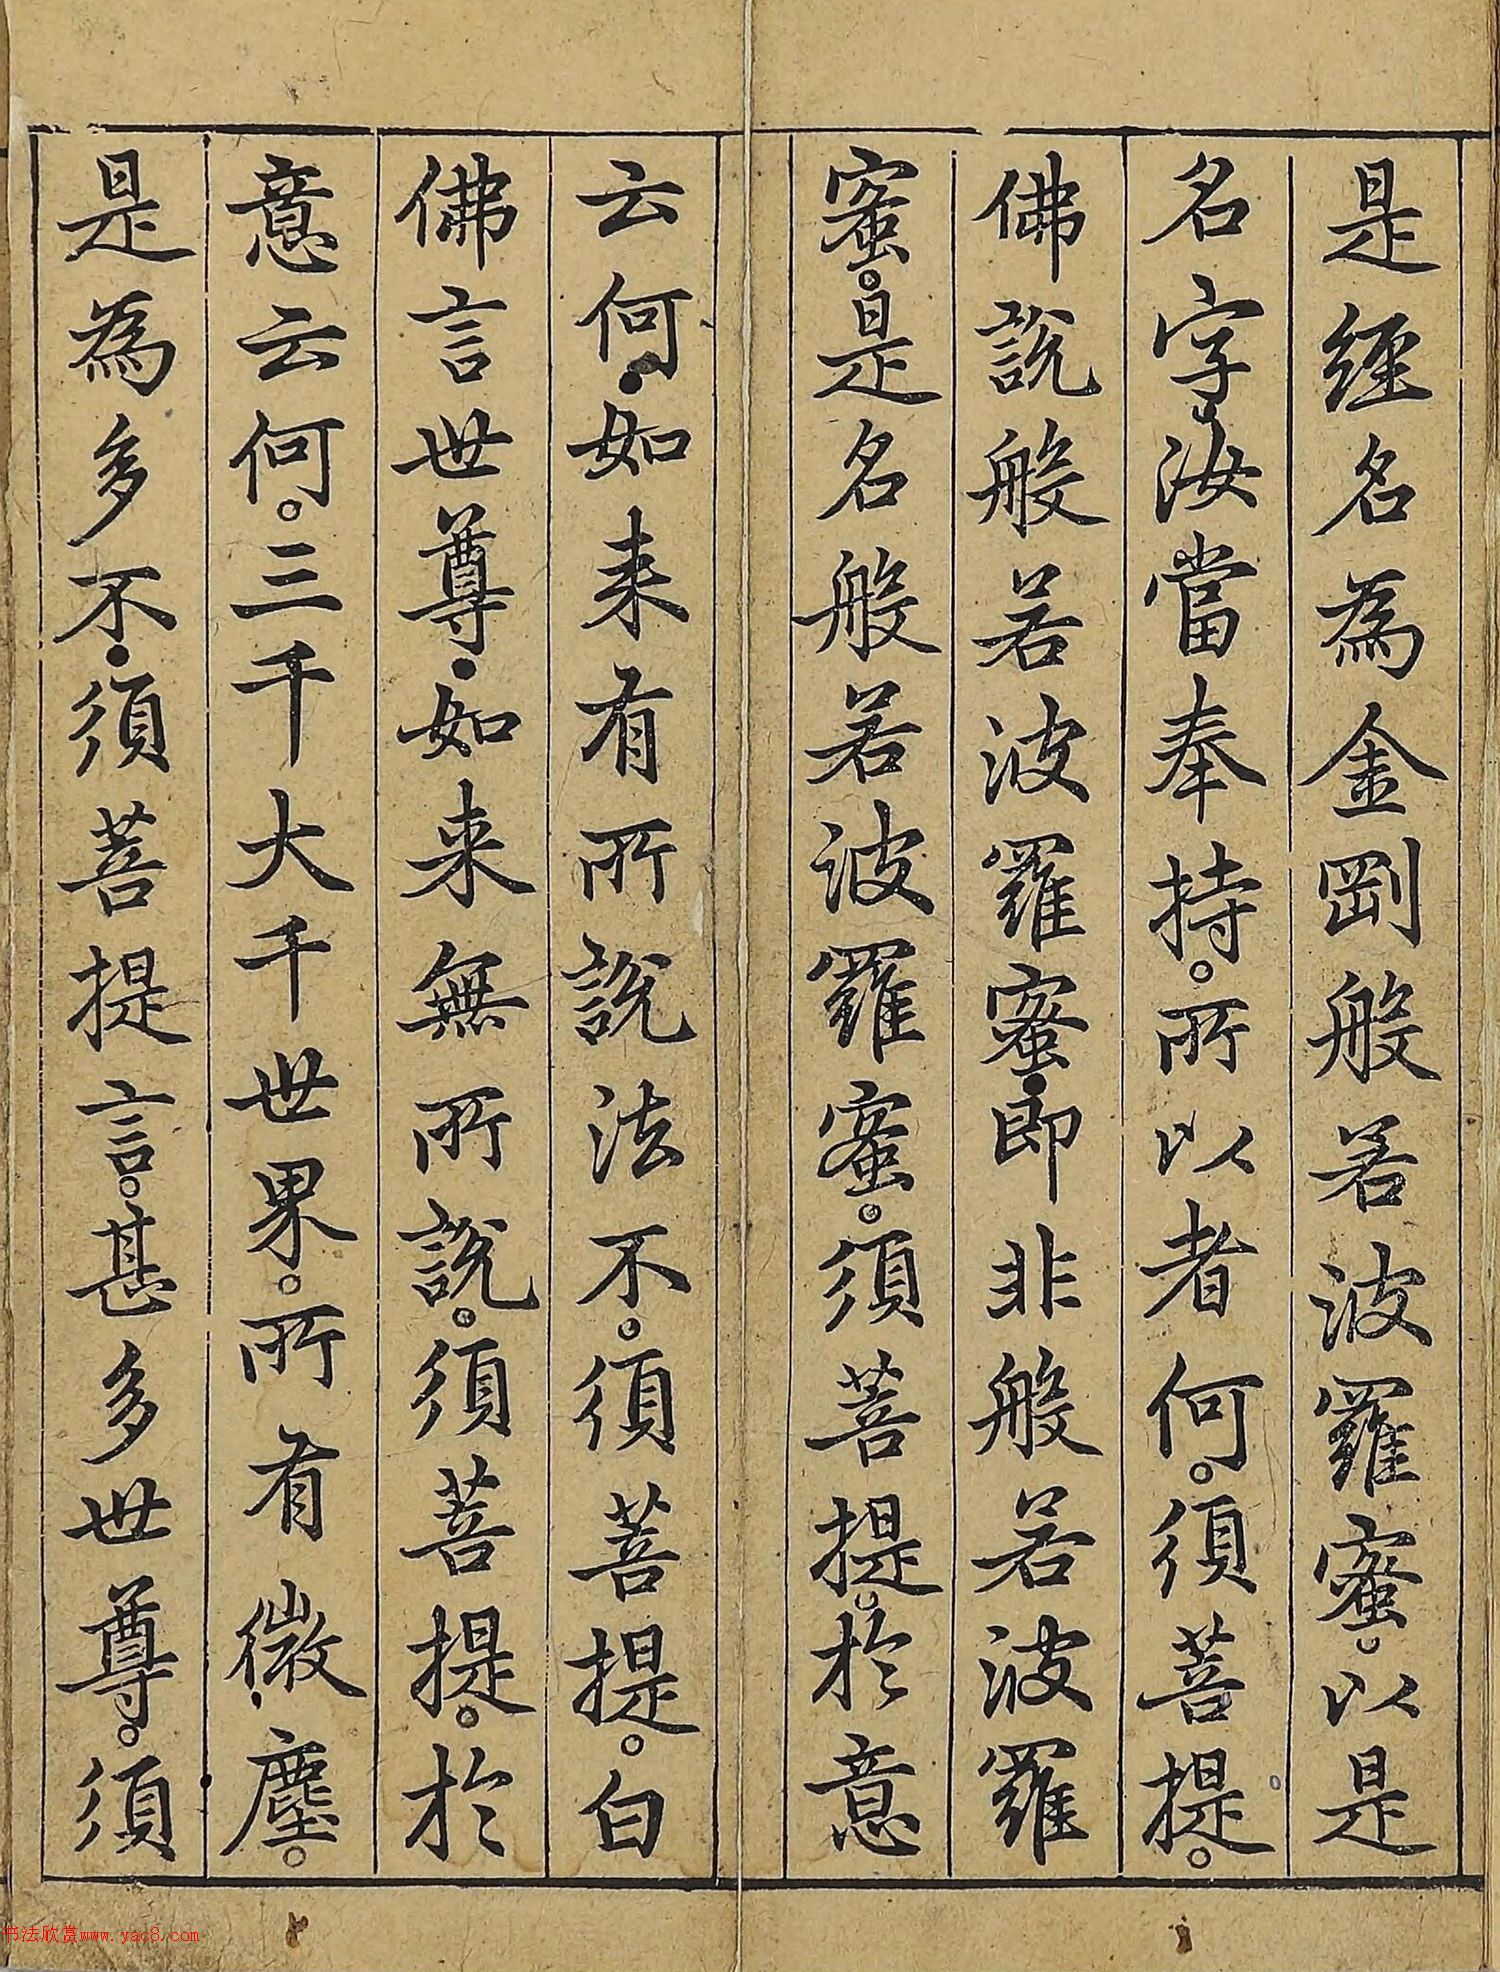 是經名為金剛般若波羅蜜。以是
名字汝當奉持。所以者何。須菩提。
佛說般若波羅蜜即非般若波羅
蜜。是名般若波羅蜜。須菩提。於意
云何如来有所說法不。須菩提。白
佛言世尊如来無所說。須菩提。於
意云何。三千大千世界。所有微塵。
是為多不須菩提言。甚多世尊。須
书法欣赏www.yac8.com